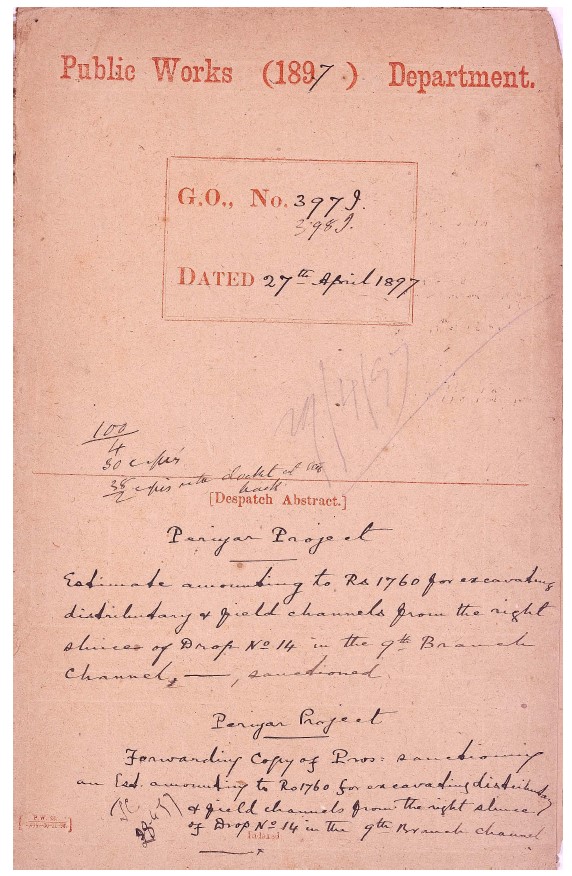 Public Works (1897) Department.
G.O., No. 397 I.
398 I.
DATED 27th April 1897
29/4/97
100
4
30 copies
38 copies with docket at the
2 back
[Despatch Abstract.]
Periyar Project
Estimate amounting to Rs 1760 for excavating
distributary & field channels from the right
sluice of Drop No 14 in the 9th Branch
Channel, —, sanctioned.
Periyar Project
Forwarding Copy of Pros: sanctioning
an Est. amounting to Rs 1760 for excavating distributary
& field channels from the right sluice
of Drop No 14 in the 9th Branch Channel
Indexed